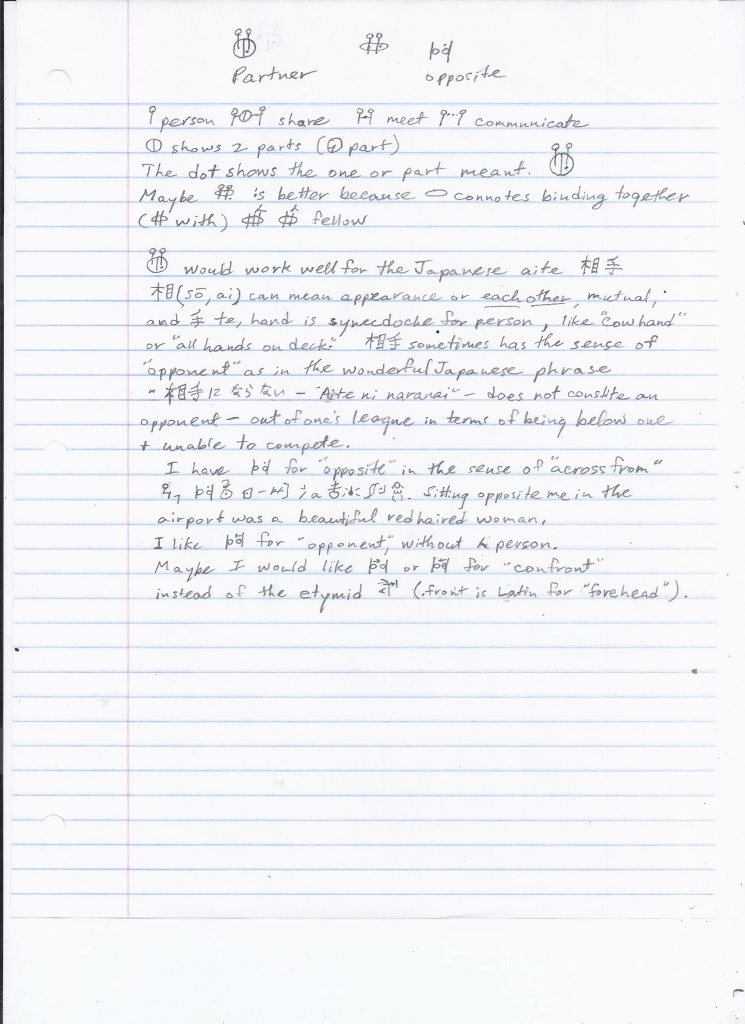 Partner opposite
person share meet communicate
shows 2 parts ( part)
The dot shows the one or part meant.
Maybe is better because connotes binding together
( with) fellow
would work well for the Japanese aite 相手
相(sō, ai) can mean appearance or each other, mutual,
and 手 te, hand is synecdoche for person, like "cowhand"
or "all hands on deck." 相手 sometimes has the sense of
"opponent" as in the wonderful Japanese phrase
"相手にならない – "Aite ni naranai" – does not constite an
opponent – out of one's league in terms of being below one
+ unable to compete.
I have for "opposite" in the sense of "across from"
Sitting opposite me in the
airport was a beautiful redhaired woman.
I like for "opponent," without person.
Maybe I would like or for "confront"
instead of the etymid (.front is Latin for "forehead").